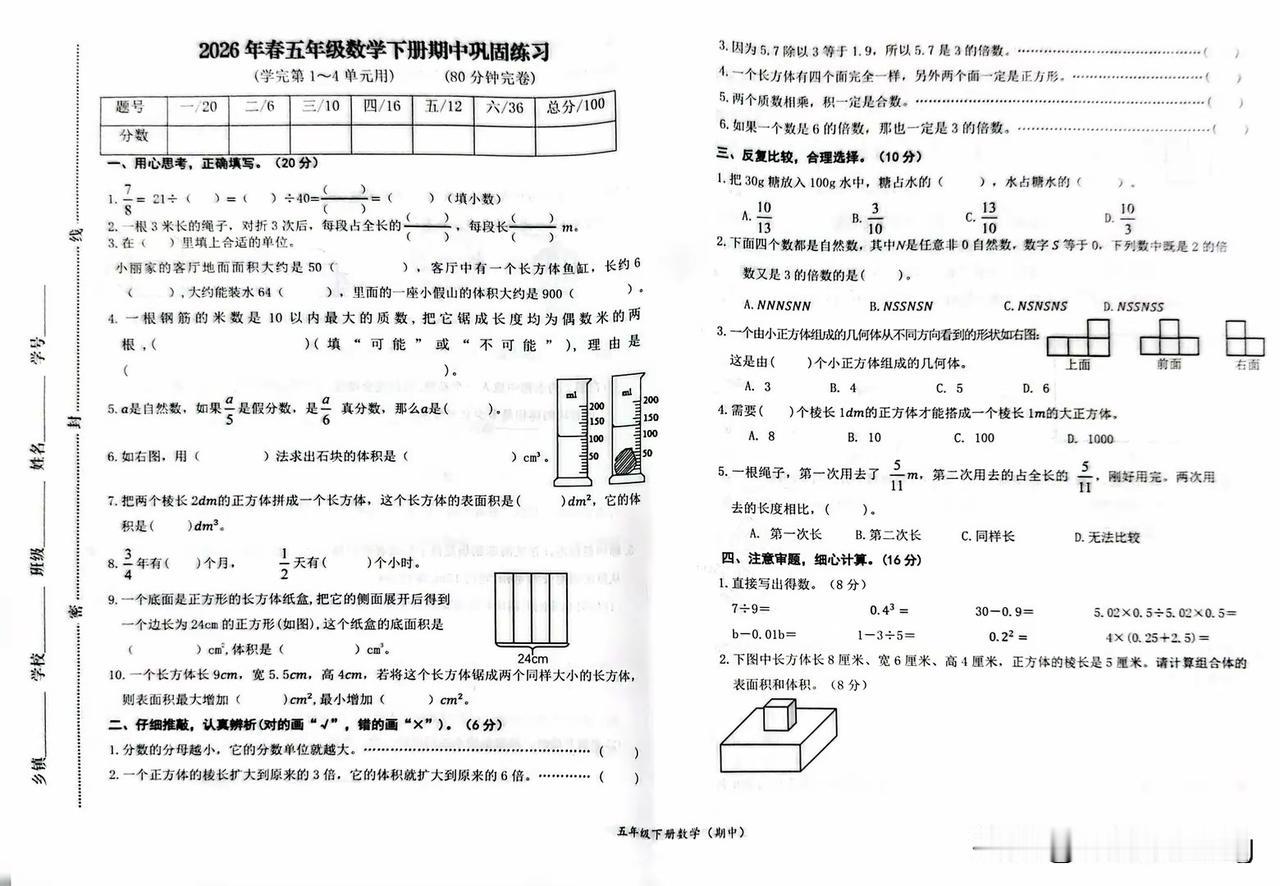 2026年春五年级数学下册期中巩固练习
(学完第1～4单元用) (80分钟完卷)
题号 一/20 二/6 三/10 四/16 五/12 六/36 总分/100
分数
一、用心思考，正确填写。（20分）
1. 7/8 = 21÷（ ）=（ ）÷40=( )/( )=（ ）（填小数）
2.一根3米长的绳子，对折3次后，每段占全长的( )/( )，每段长( )/( ) m。
3.在（ ）里填上合适的单位。
小丽家的客厅地面面积大约是50（ ），客厅中有一个长方体鱼缸，长约6
（ ）,大约能装水64（ ），里面的一座小假山的体积大约是900（ ）。
4. 一根钢筋的米数是10以内最大的质数,把它锯成长度均为偶数米的两
根,( )(填“可能”或“不可能”),理由是
( )。
5.a是自然数，如果a/5是假分数，是a/6 真分数，那么a是( )。
ml 200 150 100 50
ml 200 150 100 50
6.如右图，用（ ）法求出石块的体积是（ ）cm³。
7.把两个棱长2dm的正方体拼成一个长方体，这个长方体的表面积是( )dm²，它的体
积是( )dm³。
8. 3/4年有( )个月， 1/2天有( )个小时。
9.一个底面是正方形的长方体纸盒,把它的侧面展开后得到
一个边长为24cm的正方形(如图),这个纸盒的底面积是
（ ）cm²,体积是（ ）cm³。
24cm
10.一个长方体长9cm，宽5.5cm，高4cm，若将这个长方体锯成两个同样大小的长方体，
则表面积最大增加（ )cm²,最小增加（ ）cm²。
二、仔细推敲，认真辨析(对的画“√”，错的画“×”）。（6分）
1.分数的分母越小，它的分数单位就越大。…………………………………（ ）
2.一个正方体的棱长扩大到原来的3倍，它的体积就扩大到原来的6倍。…………（ ）
乡镇 学校 班级 姓名 学号
密 封 线
3.因为5.7除以3等于1.9，所以5.7是3的倍数。…………………………（ ）
4.一个长方体有四个面完全一样，另外两个面一定是正方形。…………………（ ）
5.两个质数相乘，积一定是合数。……………………………………………（ ）
6.如果一个数是6的倍数，那也一定是3的倍数。…………………………（ ）
三、反复比较，合理选择。（10分）
1.把30g糖放入100g水中，糖占水的（ ），水占糖水的（ ）。
A. 10/13 B. 3/10 C. 13/10 D. 10/3
2.下面四个数都是自然数，其中N是任意非0自然数，数字S等于0，下列数中既是2的倍
数又是3的倍数的是( )。
A.NNNSNN B.NSSNSN C.NSNSNS D.NSSNSS
3.一个由小正方体组成的几何体从不同方向看到的形状如右图:
上面 前面 右面
这是由( )个小正方体组成的几何体。
A. 3 B. 4 C. 5 D. 6
4.需要( )个棱长1dm的正方体才能搭成一个棱长1m的大正方体。
A. 8 B. 10 C. 100 D. 1000
5.一根绳子，第一次用去了 5/11 m，第二次用去的占全长的 5/11，刚好用完。两次用
去的长度相比，( )。
A. 第一次长 B.第二次长 C.同样长 D.无法比较
四、注意审题，细心计算。（16分）
1.直接写出得数。（8分）
7÷9= 0.4³= 30－0.9= 5.02×0.5÷5.02×0.5=
b－0.01b= 1－3÷5= 0.2²= 4×(0.25+2.5)=
2.下图中长方体长8厘米、宽6厘米、高4厘米，正方体的棱长是5厘米。请计算组合体的
表面积和体积。（8分）
五年级下册数学（期中）